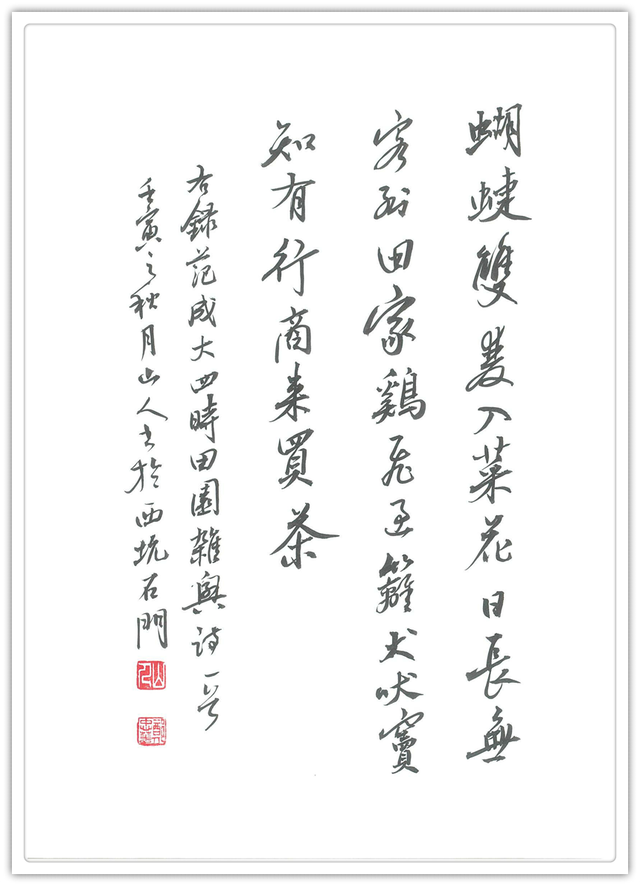 蝴蜨雙雙入菜花日長無
客到田家鷄飛過籬犬吠竇
知有行商來買茶
右錄范成大四時田園雜興詩一首
壬寅之秋月山人書於西坑石門
山人